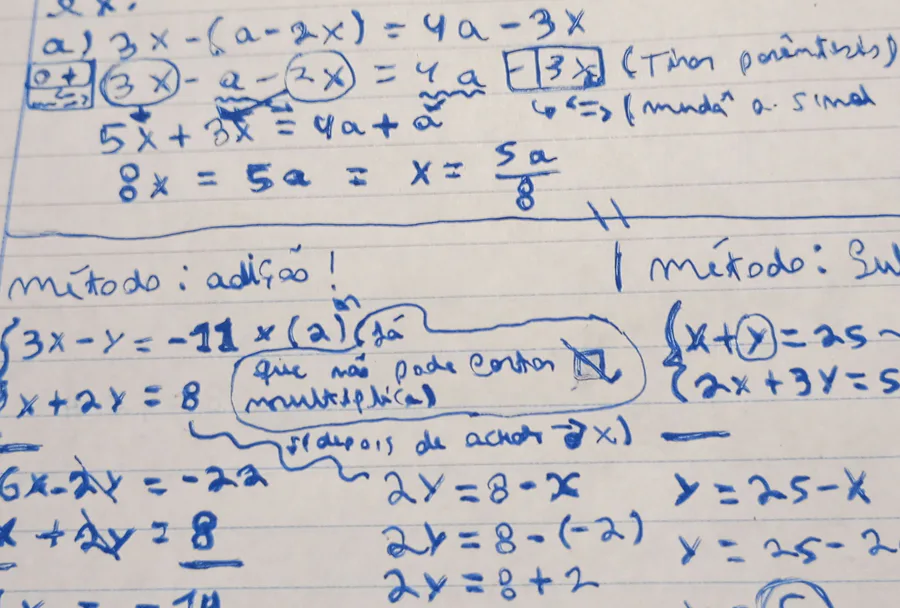 a) 3x-(a-2x) = 4a-3x
3x - a - 2x = 4a - 3x (Tirar parêntisis)
5x + 3x = 4a + a => (muda a sinal
8x = 5a = x = 5a/8
método: adição! | método: Su
{3x-y = -11 x(2) (já {x+y=25-
que não pode cortar
x+2y = 8 multiplica) {2x+3y=5
depois de achar x)
6x-2y = -22 2y = 8-x y = 25-x
x + 2y = 8 2y = 8-(-2) y = 25-2
= -14 2y = 8+2